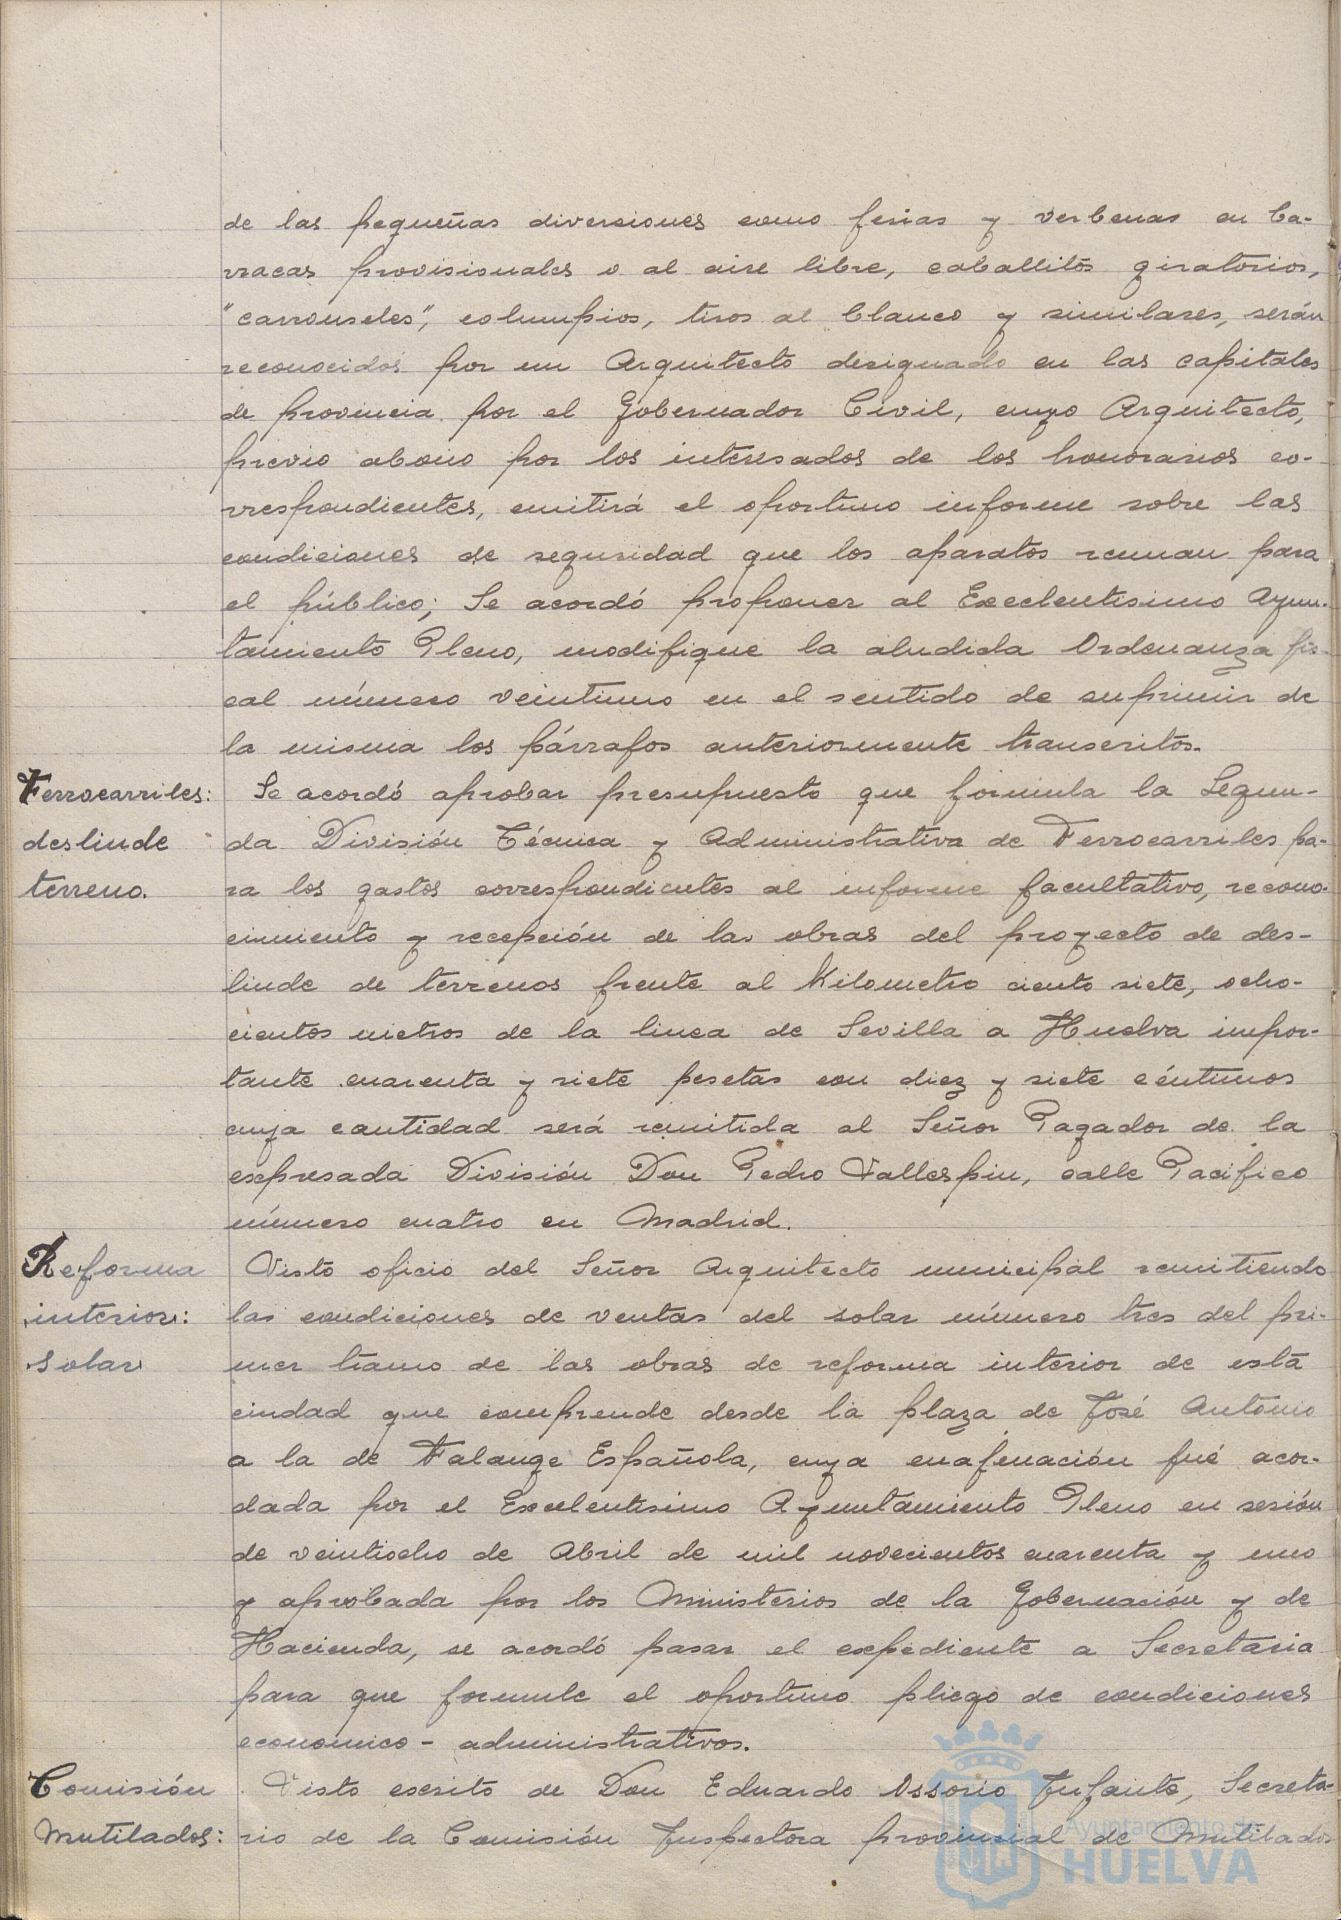 de las pequeñas diversiones como ferias y verbenas en ba-
rracas provisionales o al aire libre, caballitos giratorios,
"carrouseles", columpios, tiros al blanco y similares, serán
reconocidos por un Arquitecto designado en las capitales
de provincia por el Gobernador Civil, cuyo Arquitecto,
previo abono por los interesados de los honorarios co-
rrespondientes, emitirá el oportuno informe sobre las
condiciones de seguridad que los aparatos reunan para
el público; Se acordó proponer al Excelentisimo Ayun-
tamiento Pleno, modifique la aludida Ordenanza fis-
cal número veintiuno en el sentido de suprimir de
la misma los párrafos anteriormente transcritos.
Ferrocarriles: Se acordó aprobar presupuesto que formula la Segun-
deslinde da División Técnica y Administrativa de Ferrocarriles pa-
terreno. ra los gastos correspondientes al informe facultativo, recono-
cimiento y recepción de las obras del proyecto de des-
linde de terrenos frente al Kilometro ciento siete, ocho-
cientos metros de la linea de Sevilla a Huelva impor-
tante cuarenta y siete pesetas con diez y siete céntimos
cuya cantidad será remitida al Señor Pagador de la
expresada División Don Pedro Vallespin, calle Pacifico
número cuatro en Madrid.
Reforma Visto oficio del Señor Arquitecto municipal remitiendo
interior: las condiciones de ventas del solar número tres del pri-
solar mer tramo de las obras de reforma interior de esta
ciudad que comprende desde la plaza de José Antonio
a la de Falange Española, cuya enajenación fué acor-
dada por el Excelentisimo Ayuntamiento Pleno en sesión
de veintiocho de Abril de mil novecientos cuarenta y uno
y aprobada por los Ministerios de la Gobernación y de
Hacienda, se acordó pasar el expediente a Secretaria
para que formule el oportuno pliego de condiciones
economico-administrativos.
Comisión Visto escrito de Don Eduardo Ossorio Infante, Secreta-
Mutilados: rio de la Comisión Inspectora provincial de Mutilados
Ayuntamiento de
HUELVA